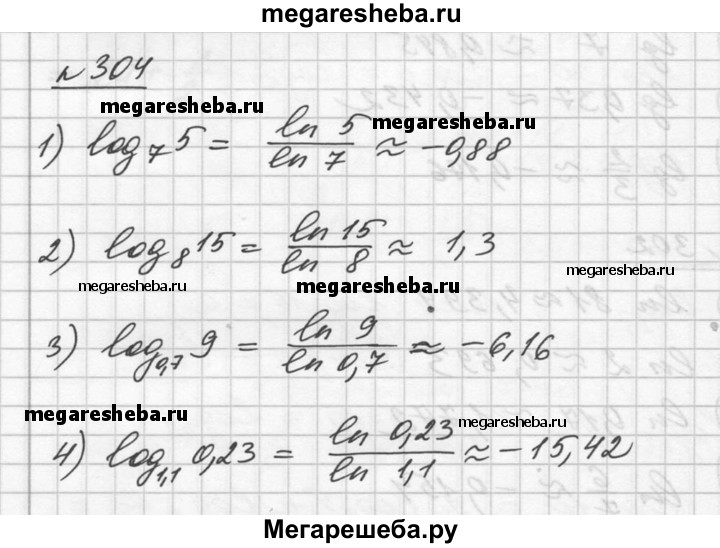 megaresheba.ru
n 304
megaresheba.ru
1) log₇ 5 = ln 5 / ln 7 ≈ -0,88
megaresheba.ru
2) log₈ 15 = ln 15 / ln 8 ≈ 1,3
megaresheba.ru
megaresheba.ru
megaresheba.ru
3) log₀,₇ 9 = ln 9 / ln 0,7 ≈ -6,16
megaresheba.ru
4) log₁,₁ 0,23 = ln 0,23 / ln 1,1 ≈ -15,42
megaresheba.ru
Мегарешеба.ру